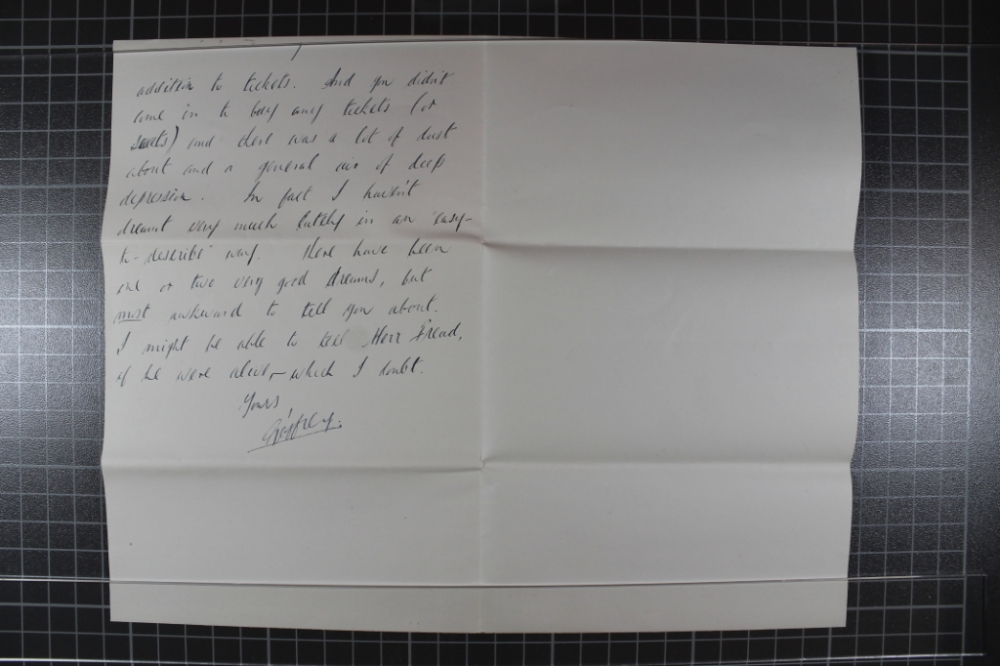 addition to tickets. And you didn't
come in to buy any tickets (or
sweets) and there was a lot of dust
about and a general air of deep
depression. In fact I haven't
dreamt very much lately in an 'easy-
to-describe' way. There have been
one or two very good dreams, but
most awkward to tell you about.
I might be able to tell Herr Freud,
if he were alive, – which I doubt.
Yours
Geoffrey.